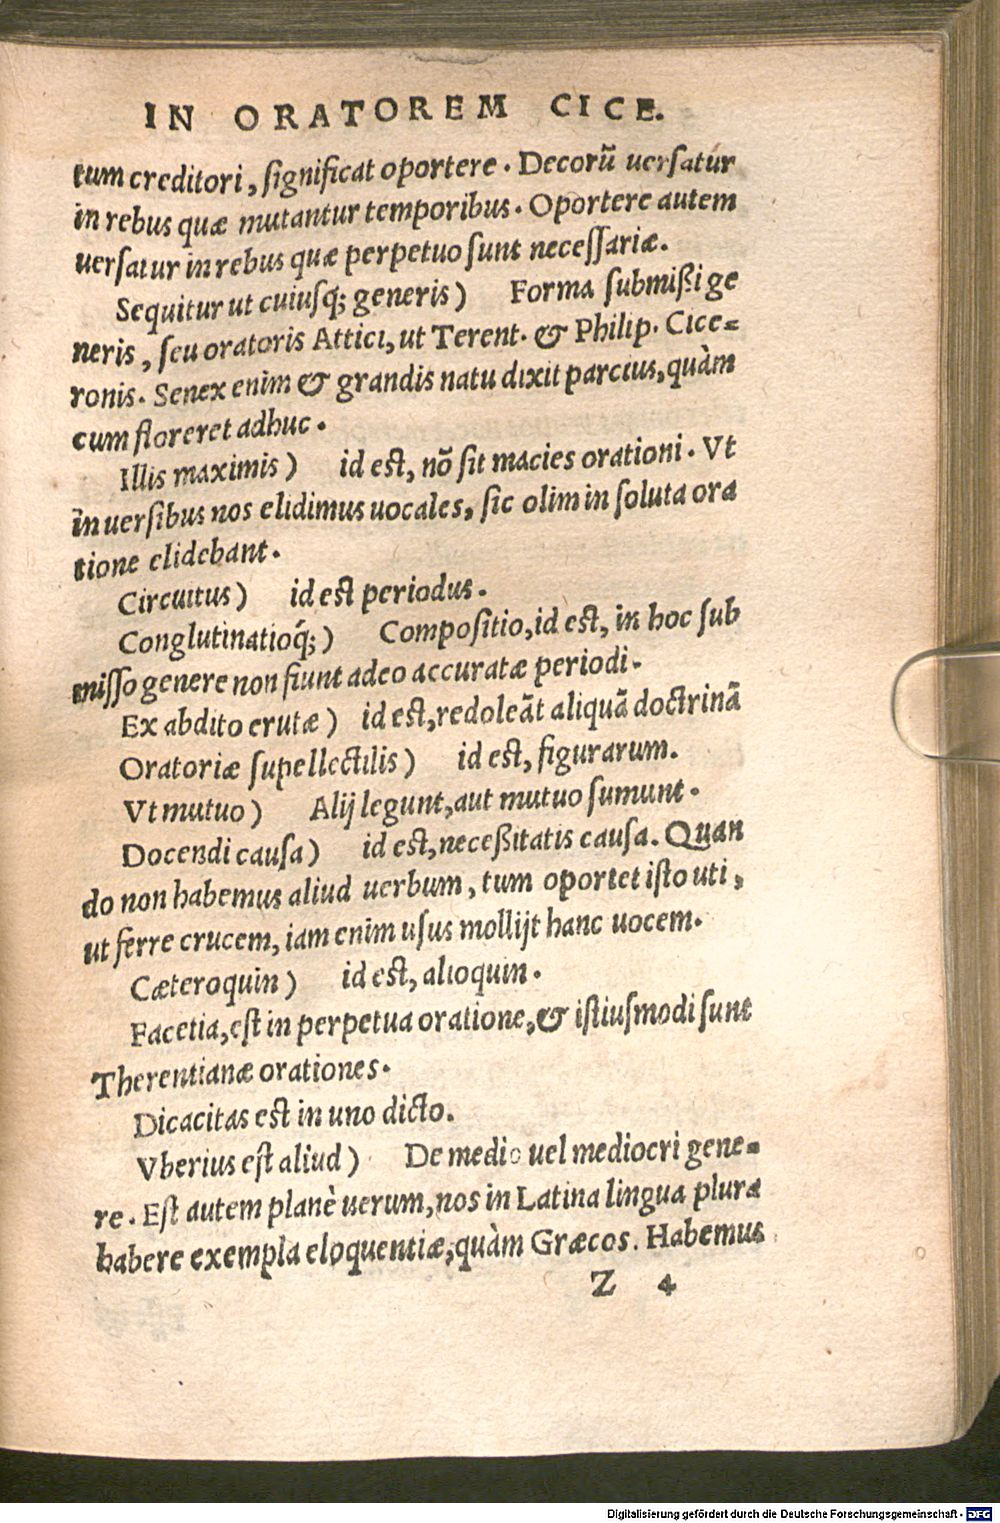 IN ORATOREM CICE.
tum creditori, significat oportere. Decorũ uersatur
in rebus quæ mutantur temporibus. Oportere autem
uersatur in rebus quæ perpetuo sunt necessariæ.
Sequitur ut cuiusq́; generis) Forma submißi ge
neris, seu oratoris Attici, ut Terent. & Philip. Cice-
ronis. Senex enim & grandis natu dixit parcius, quàm
cum floreret adhuc.
Illis maximis) id est, nõ sit macies orationi. Vt
in uersibus nos elidimus uocales, sic olim in soluta ora
tione elidebant.
Circuitus) id est periodus.
Conglutinatioq́;) Compositio, id est, in hoc sub
misso genere non fiunt adeo accuratæ periodi.
Ex abdito erutæ) id est, redoleãt aliquã doctrinã
Oratoriæ supellectilis) id est, figurarum.
Vt mutuo) Alij legunt, aut mutuo sumunt.
Docendi causa) id est, neceßitatis causa. Quan
do non habemus aliud uerbum, tum oportet isto uti,
ut ferre crucem, iam enim usus mollijt hanc uocem.
Cæteroquin) id est, alioquin.
Facetia, est in perpetua oratione, & istiusmodi sunt
Therentianæ orationes.
Dicacitas est in uno dicto.
Vberius est aliud) De medio uel mediocri gene-
re. Est autem planè uerum, nos in Latina lingua plura
habere exempla eloquentiæ, quàm Græcos. Habemus
Z 4
Digitalisierung gefördert durch die Deutsche Forschungsgemeinschaft - DFG